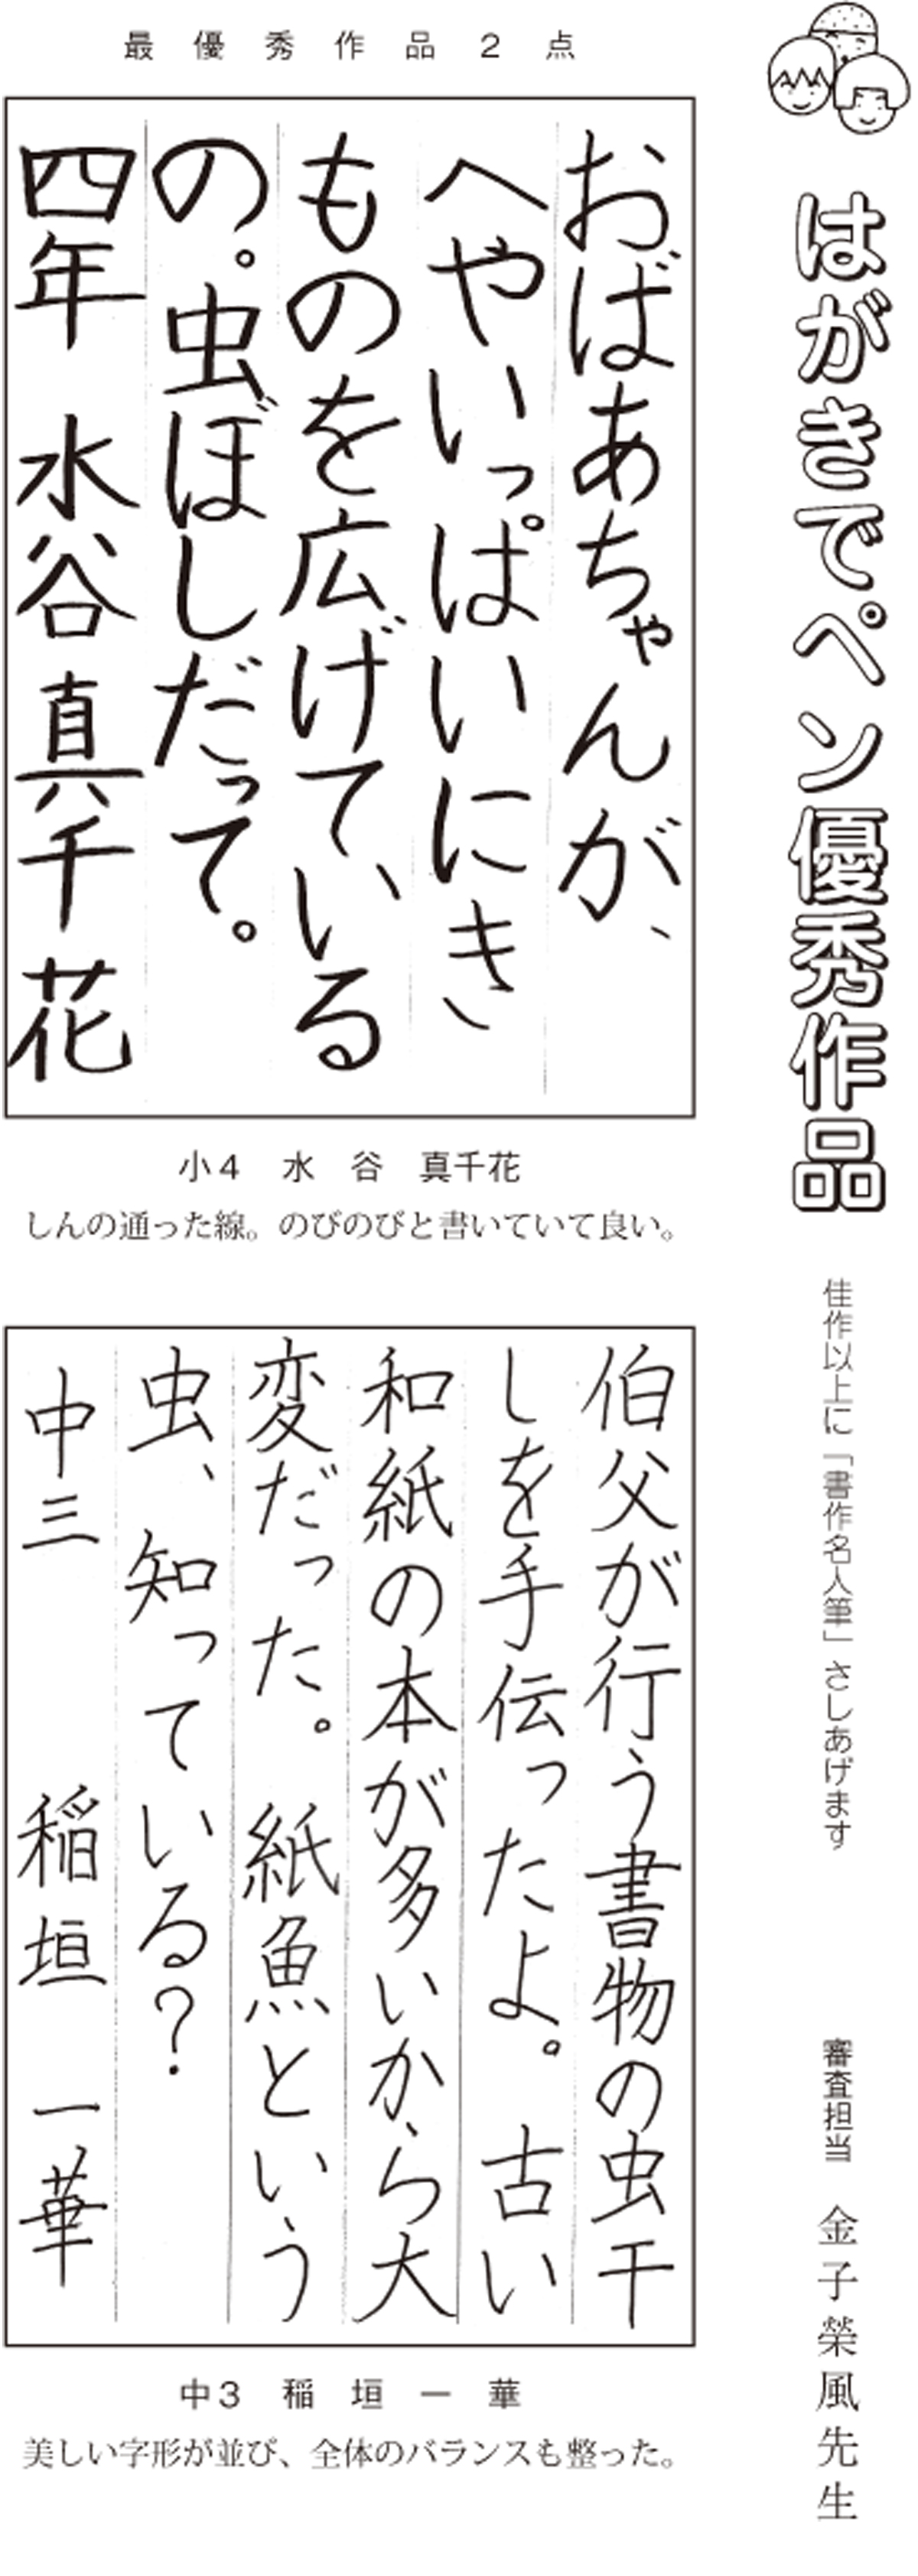 はがきでペン優秀作品
佳作以上に「書作名人筆」さしあげます
審査担当 金子榮風先生
最優秀作品2点
おばあちゃんが、
へやいっぱいにき
ものを広げている
の。虫ぼしだって。
四年 水谷真千花
小4 水谷 真千花
しんの通った線。のびのびと書いていて良い。
伯父が行う書物の虫干
しを手伝ったよ。古い
和紙の本が多いから大
変だった。紙魚という
虫、知っている？
中三 稲垣一華
中3 稲垣一華
美しい字形が並び、全体のバランスも整った。